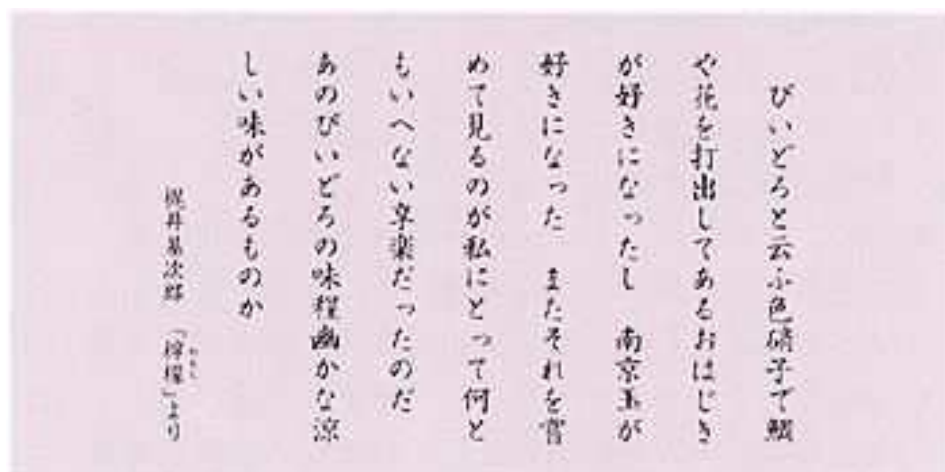 びいどろと云ふ色硝子で鯛
や花を打出してあるおはじき
が好きになったし　南京玉が
好きになった　またそれを嘗
めて見るのが私にとって何と
もいへない享楽だったのだ
あのびいどろの味程幽かな涼
しい味があるものか
梶井基次郎　「檸檬」より
れもん